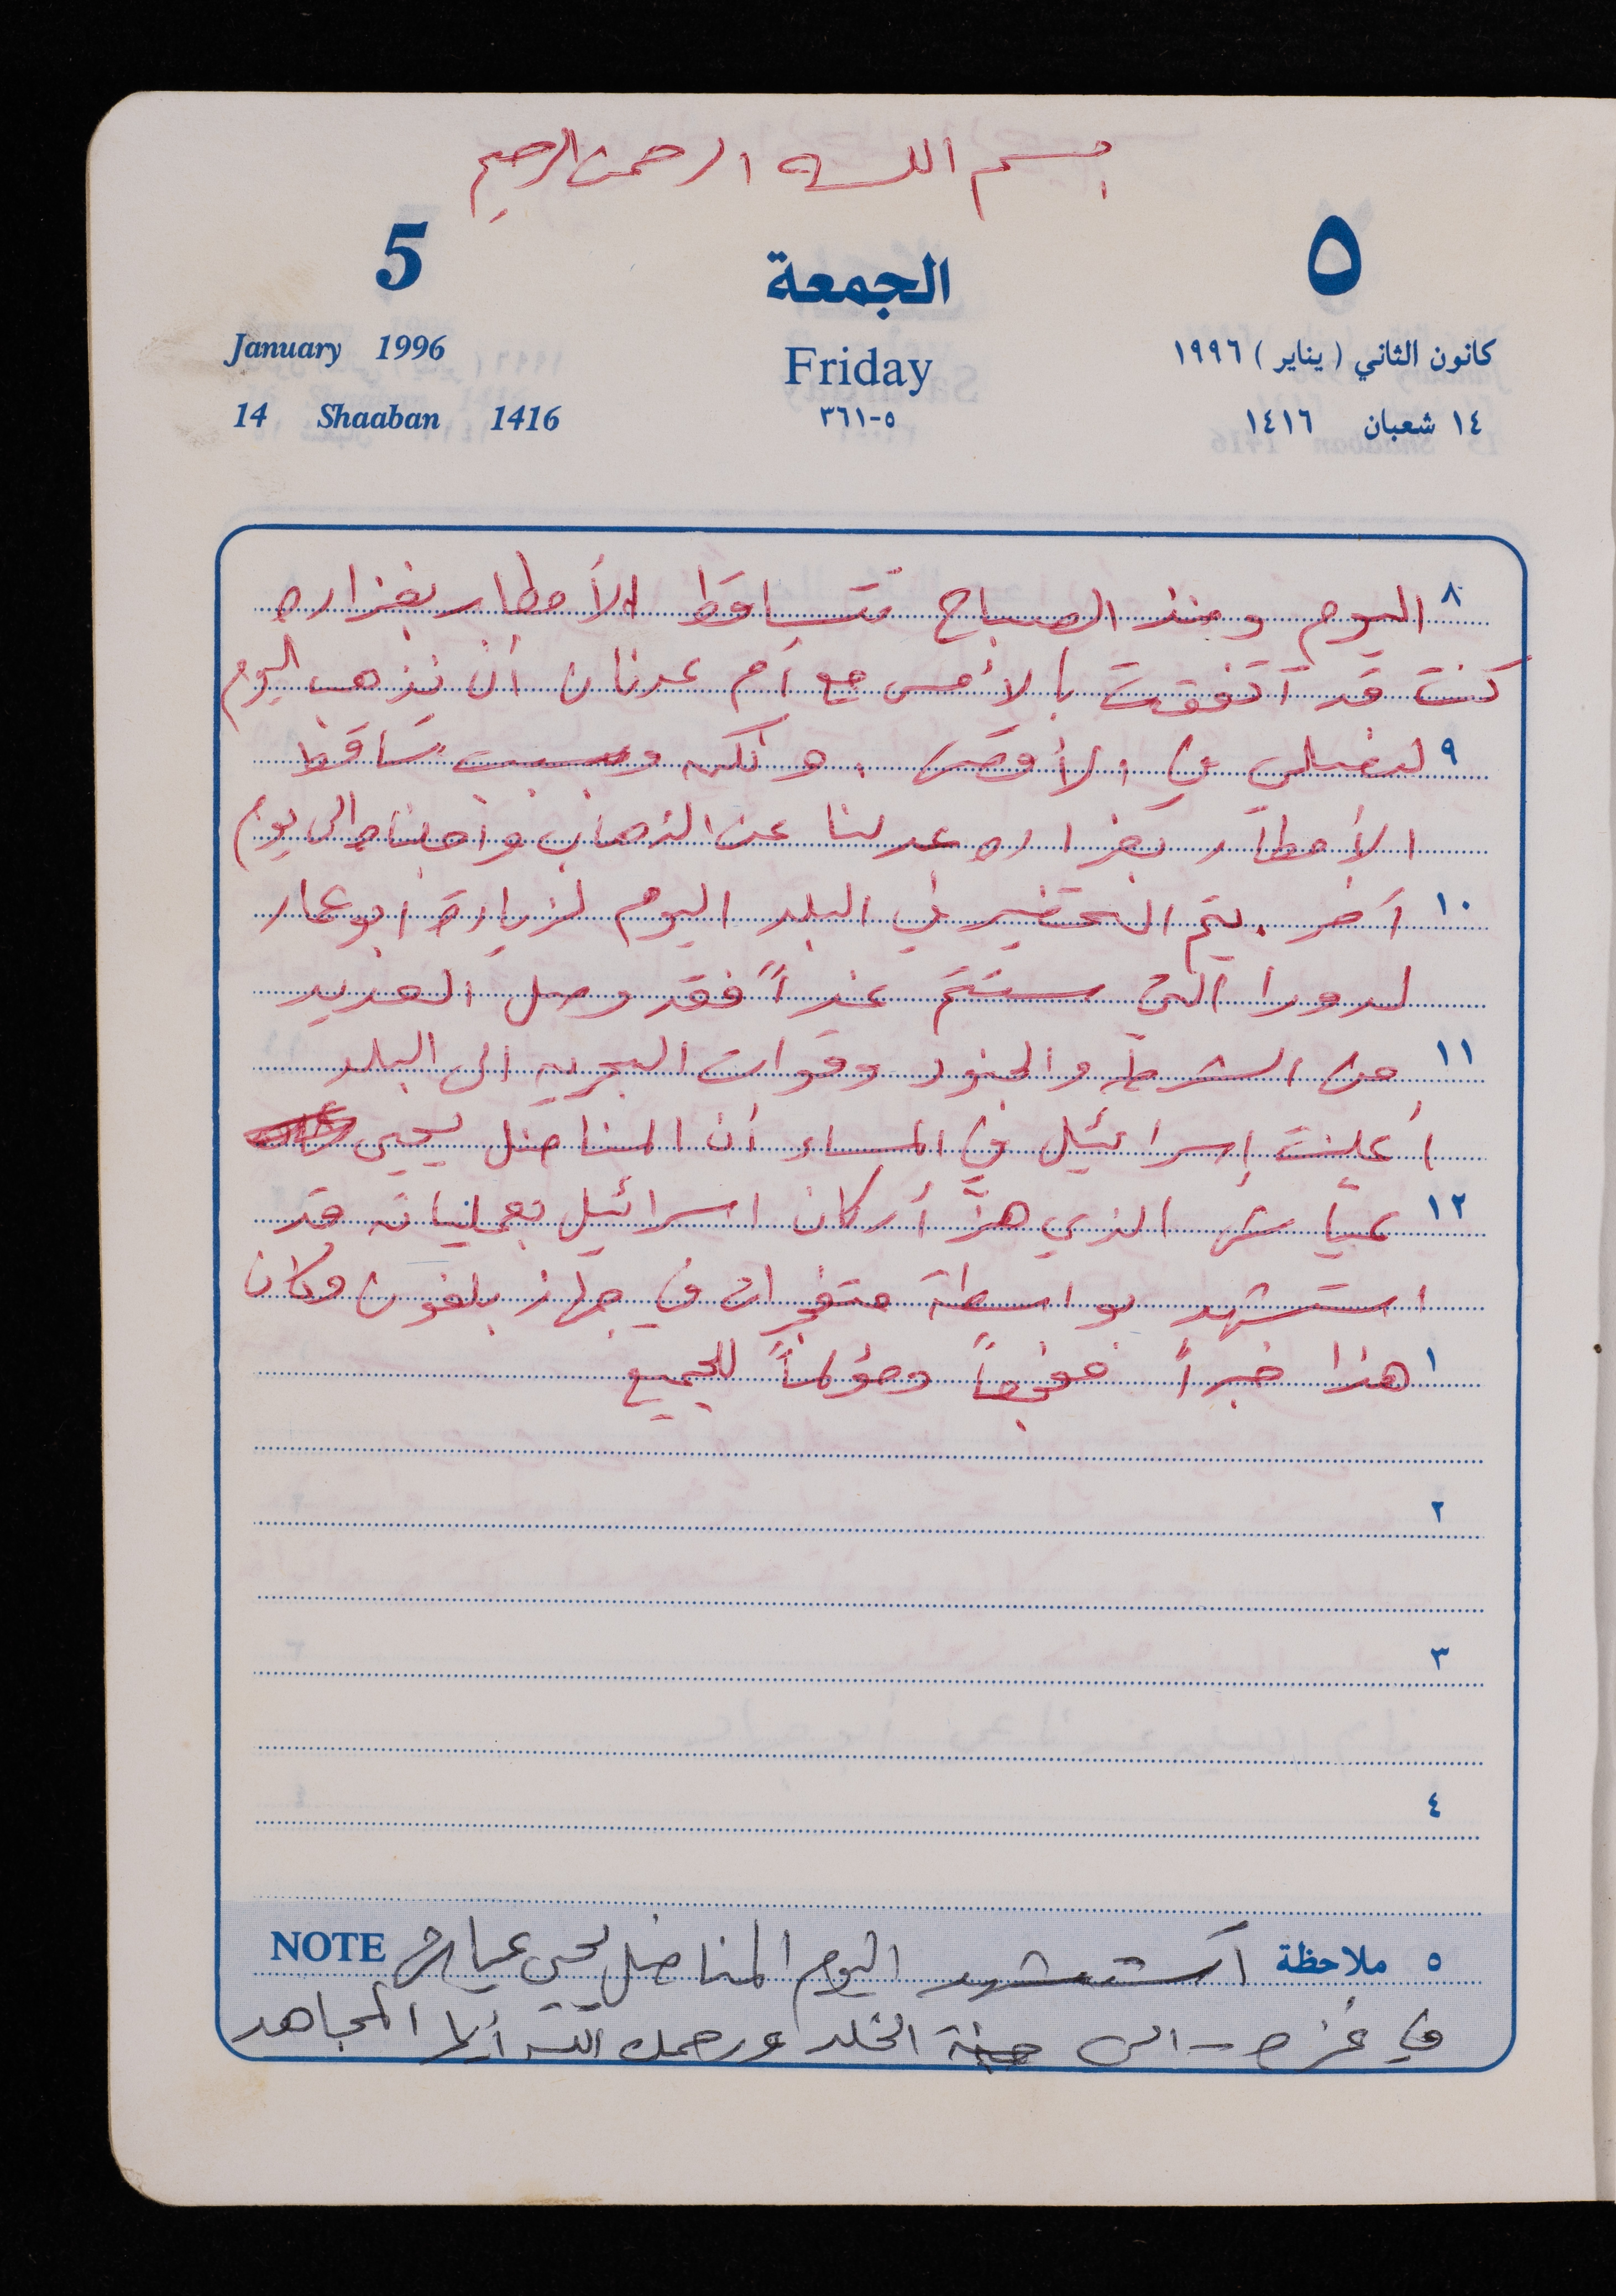 بسم الله الرحمن الرحيم
5
الجمعة
٥
January 1996
Friday
كانون الثاني ( يناير ) ١٩٩٦
14 Shaaban 1416
٣٦١-٥
١٤ شعبان ١٤١٦
٨ اليوم ومنذ الصباح تتساقط الأمطار بغزاره
كنت قد اتفقت بالأمس مع أم عدنان أن نذهب اليوم
٩ لنصلي في الأقصى. ولكن وبسبب تساقط
الأمطار بغزاره عدلنا عن الذهاب وأجلناه الى يوم
١٠ آخر. يتم التحضير في البلد اليوم لزيارة ابو عمار
لدورا التي ستتم غداً فقد وصل العديد
١١ من الشرطة والجنود وقوات البحريه الى البلد
أعلنت إسرائيل في المساء أن المناضل يحيى
١٢ عياش الذي هزّ أركان اسرائيل بعملياته قد
استشهد بواسطة متفجرات في جهاز بلفون وكان
١ هذا خبراً مفجعاً ومؤلماً للجميع
٢
٣
٤
٥ ملاحظة استشهد اليوم المناضل يحيى عياش NOTE
في غزه - الى جنة الخلد ورحمك الله أيها المجاهد